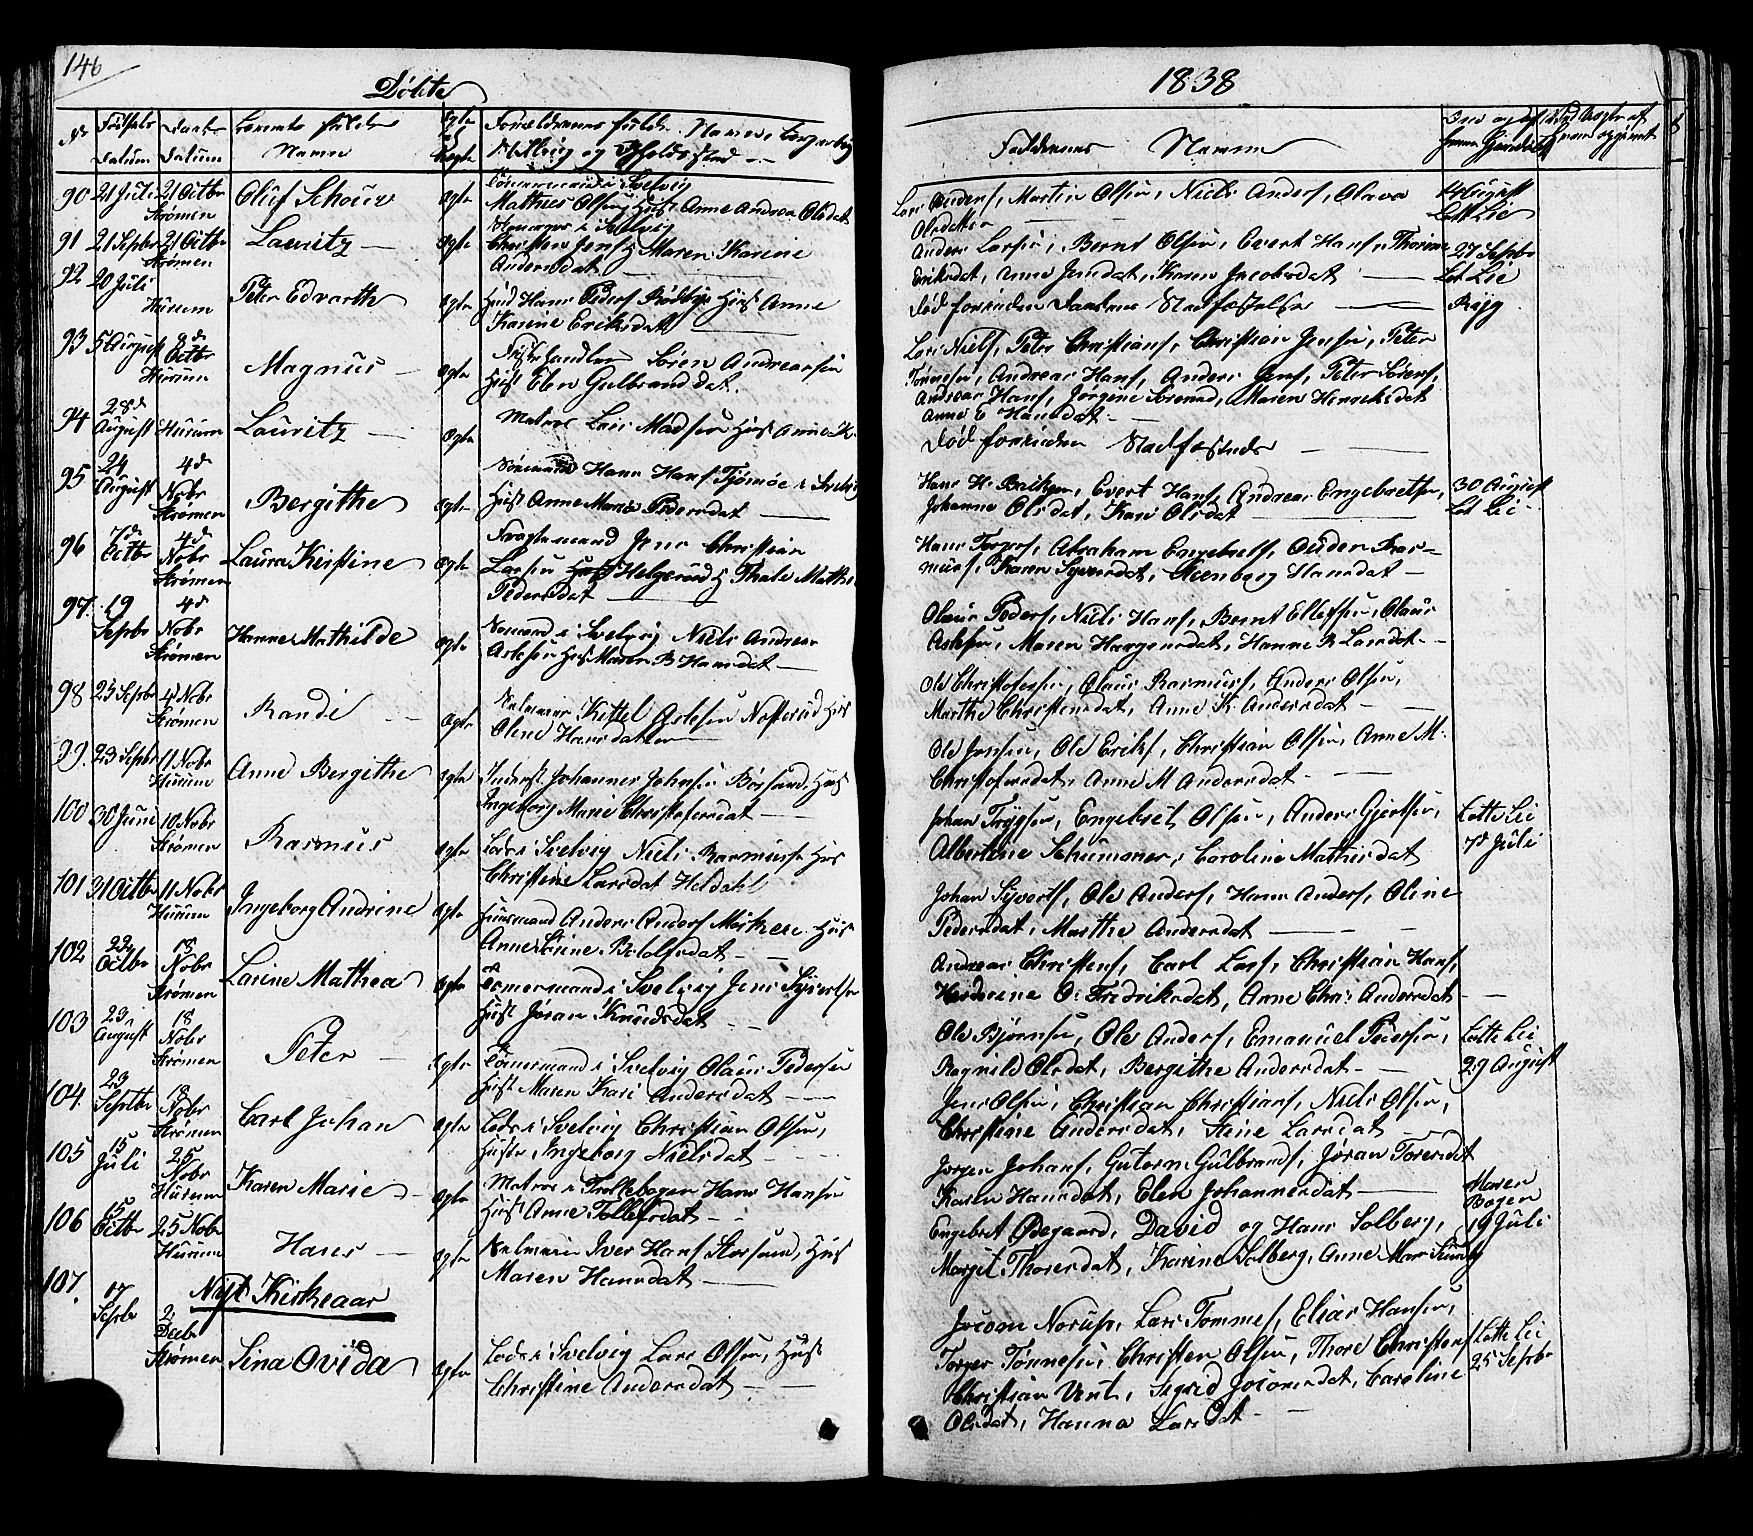 146
Döbte
1838
No
Fødsels
Datum
Daabs
Datum
Barnets fulde
Navne
Forældrenes fulde Navne, Borgerlig
Stilling og Opholdssted
Faddernes Navne
90 21 Juli 21 Octbr Strømen Oluf Schouw ægte
Tømermand i Svelvig
Mathies Olsen, Hust Anne Andrea Olsdat
Lars Anders, Martin Olsen, Niels Anders, Olava
Olsdatter
4 August
Lott Lie
91 21 Septbr 21 Octbr Strømen Lauritz ægte
i Svelvig
Christen Jens, H Maren Karine
Andersdat
Anders Larsen, Bernt Olsen, Evert Hans, Thorine
Eriksdat, Anne Jensdat, Karen Jacobsdat
27 Septbr
Lot Lie
92 20 Juli Hurum Peter Edvarth ægte
Hmd Hans Peders Rødbye Hust Anne
Karine Eriksdat
Død forinden Daabens Stadfæstelse
Rygg
93 5 August 8d Octbr Hurum Magnus ægte
Fiskehandler Søren Andreasen
Hust Elen Gulbrandsdat.
Lars Niels, Peter Christians, Christian Jensen, Peter
Tønnesen, Andreas Hans, Anders Jens, Peter Sørens,
Andreas Hans, Jørgine Sørensd, Maren Henriksdat
Anne E Hansdat
94 28d August Hurum Lauritz ægte
Matros Lars Madsen Hust Anne K.
Død forinden Stadfæstede
95 24 August 4d Nobr Strømen Bergithe ægte
Sømand Hans Hans Tjømøe i Svelvig
Hust Anne Marie Pedersdat
Hans H. , Evert Hans, Andreas Engebretsen,
Johanne Olsdat, Kari Olsdat
30 August
Lot Lie
96 7d Octbr 4d Nobr Strømen Laura Kirstine ægte
Fragtemand Jens Christian
Larsen Helgerud H Thale Mathea
Pedersdat
Hans Torgers, Abraham Engebrets, Auden Ras-
mus, Karen Syversdat, Steenborg Hansdat
97. 19 Septbr 4d Nobr Strømen Hanne Mathilde ægte
Sømand i Svelvig Niels Andreas
Aslesen Hust Maren B Hansdat
Olaus Peders, Niels Hans, Bernt Ellefsen, Olaus
Aslesen, Maren Haagensdat, Hanne R Larsdat
98 25 Septbr 4d Nobr Strømen Randi ægte
Selveier Kittel Aslesen Nøsterud Hust
Oline Hansdatter
Ole Christofersen, Olaus Rasmus, Anders Olsen,
Marthe Christensdat, Anne K. Andersdat
99. 23 Septbr 11 Nobr Hurum Anne Bergithe ægte
Inderst Johannes Johnsen Børsand, Hust
Ingeborg Marie Christofersdat
Ole Jensen, Ole Eriks, Christian Olsen, Anne M.
Christofersdat, Anne M Andersdat
100 30 Juni 10 Nobr Strømen Rasmus ægte
Lods i Svelvig Niels Rasmusen Hust
Christine Larsdat Heldahl
Johan Trygsen, Engebret Olsen, Anders Gjertsen,
Albertine Schumaner, Caroline Mathisdat
Lotte Lie
7d Juli
101 31 Octbr 11 Nobr Hurum Ingeborg Andrine ægte
Huusmand Anders Anders Mørkere Hust
Anne Stine Botolfsdat
Johan Syverts, Ole Anders, Hans Anders, Oline
Pedersdat, Marthe Andersdat
102 22 Octbr 18 Nobr Strømen Larine Mathea ægte
Tømermand i Svelvig Jens Syvertsen
Hust Jøran Knudsdat
Andreas Christens, Carl Lars, Christian Hans,
O. Fredriksdat, Anne Chri. Andersdat
103 23 August 18 Nobr Strømen Peter ægte
Tømermand i Svelvig Olaus Pedersen
Hust Maren Kari Andersdat
Ole Bjørnsen, Ole Anders, Emanuel Pedersen,
Ragnild Olsdat, Bergithe Andersdat
Lotte Lie
29 August
104. 23 Septbr 18 Nobr Strømen Carl Johan ægte
Lods i Svelvig Christian Olsen,
Hustr Ingeborg Nielsdat
Jens Olsen, Christian Christians, Niels Olsen,
Christine Andersdat, Stine Larsdat
105 15 Juli 25 Nobr Hurum Karen Marie ægte
Matros i Trellebogen Hans Hansen
Hust Anne Tollefsdat
Jørgen Johans, Gutorm Gulbrands, Jøran Toresdat
Karen Hansdat, Elen Johannesdat
Maren
Bogen
19 Juli
106 15 Octbr 25 Nobr Hurum Hans ægte
Selveier Iver Hans Storsand, Hust
Maren Hansdat
Engebret Ødegaard, David og Hans Solberg,
Margit Thoresdat, Karine Solberg, Anne Mar.
Nyt Kirkeaar
107. 17 Septbr 2 Decbr Strømen Sina Ovida ægte
Lods i Svelvig Lars Olsen, Hust
Christine Andersdat
Jocom Norup, Lars Tommes, Elias Hansen,
Torger Tønnesen, Christen Olsen, Thore Christens
Christian Unt, Sigrid Jocomsdat, Caroline
Olsdat, Hanna Larsdat
Lotte Lie
25 Septbr